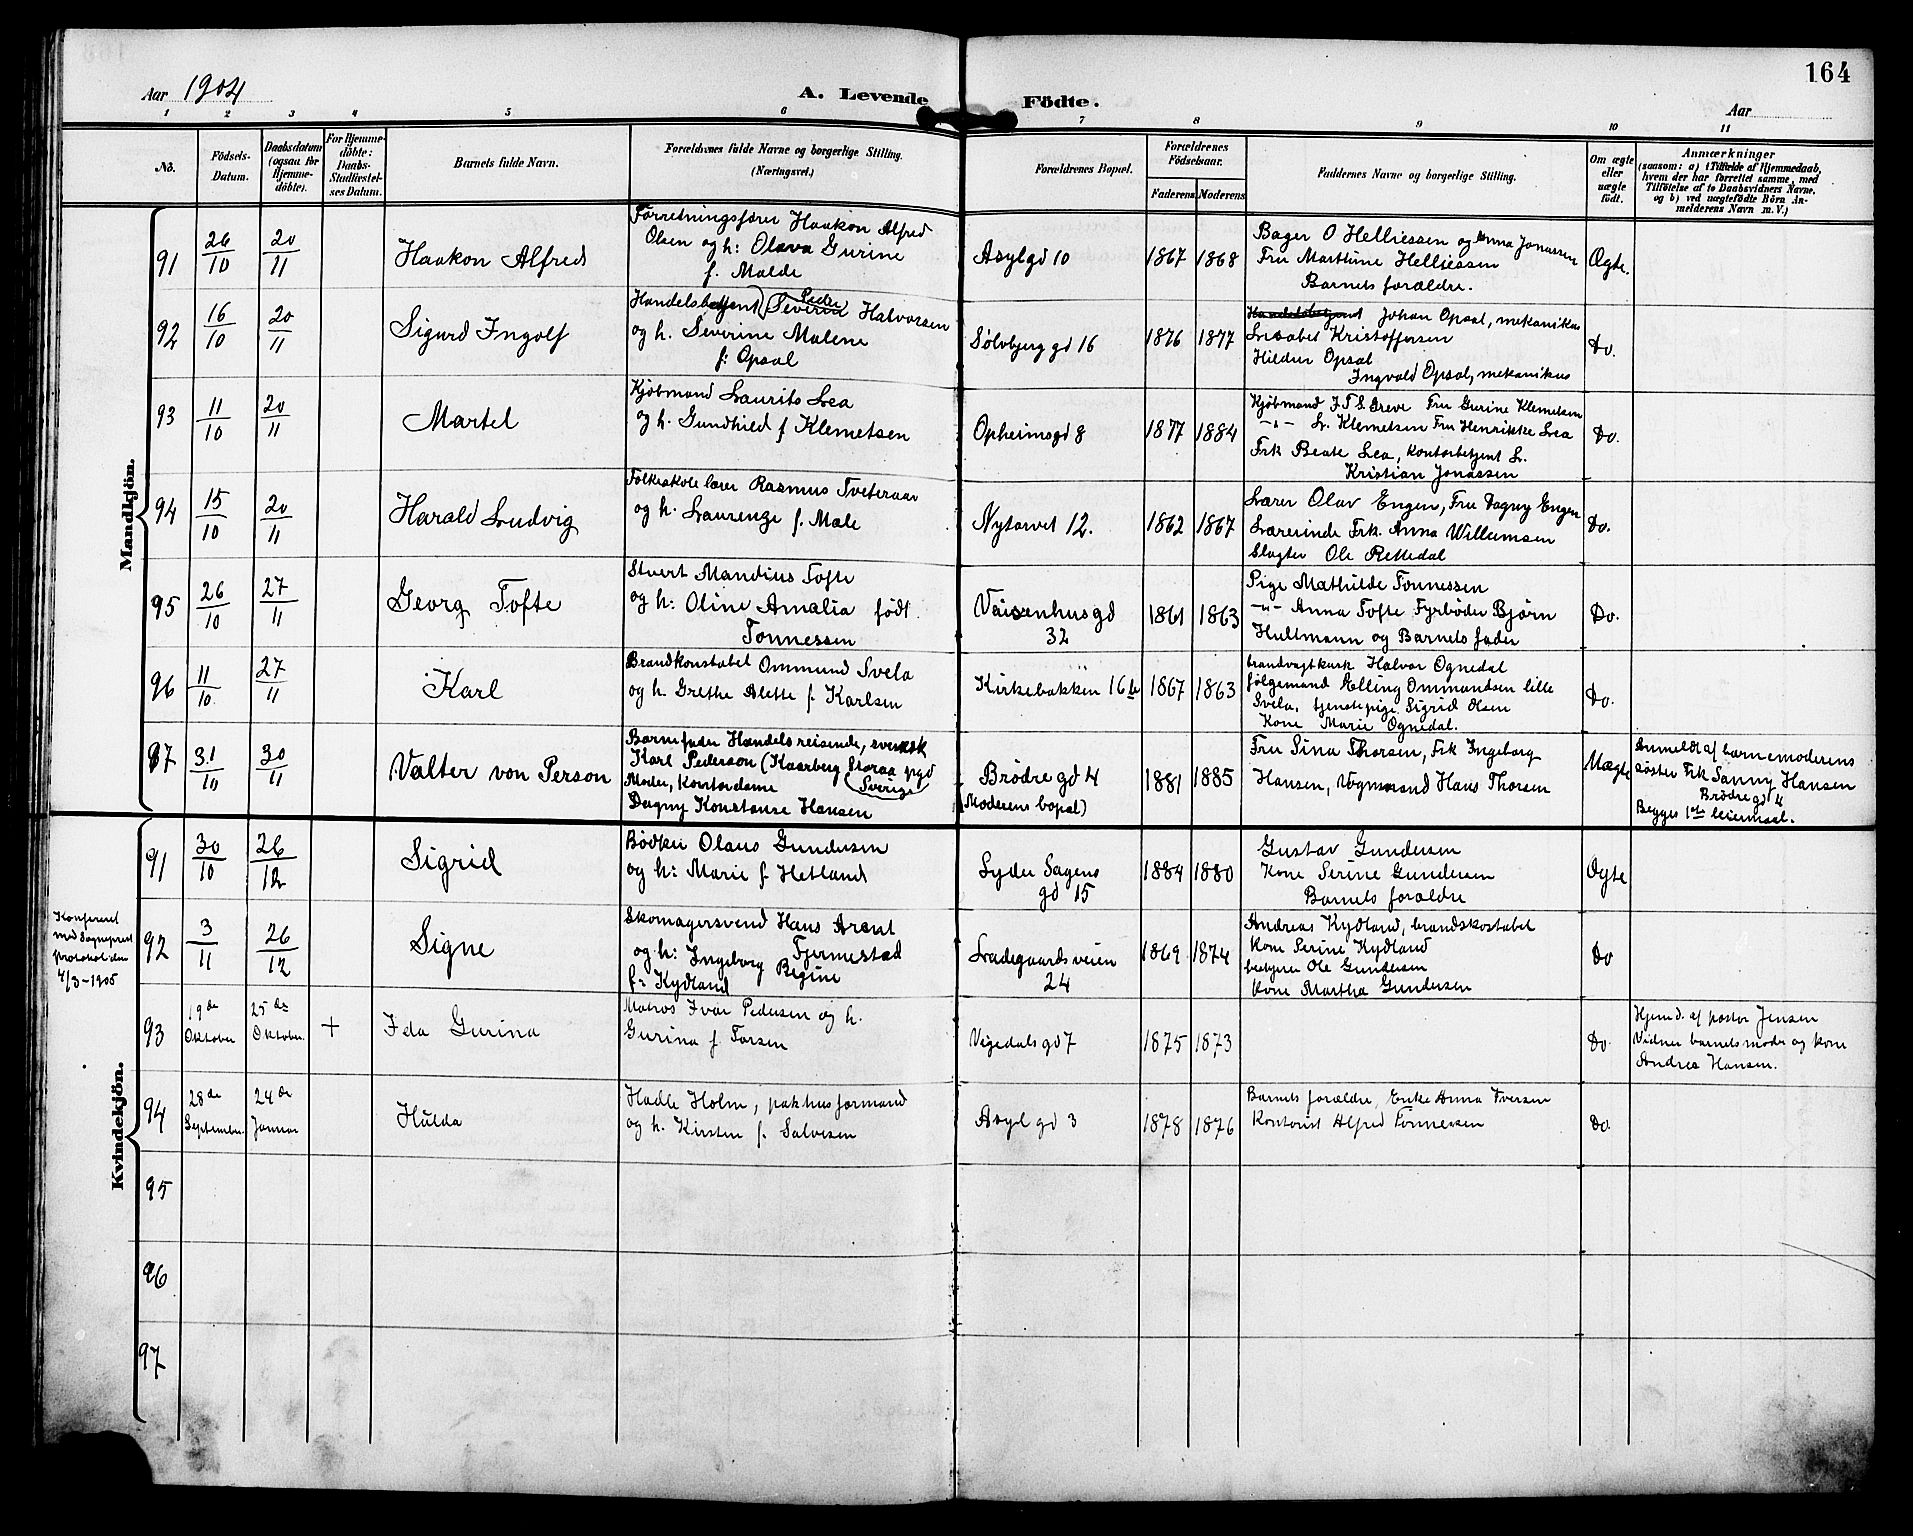 164
Aar 1904
A. Levende Födte.
Aar
1 2 3 4 5 6 7 8 9 10 11
No.
Födsels-
Datum.
Daabsdatum
(ogsaa for
Hjemme-
döbte).
For Hjemme-
döbte:
Daabs-
Stadfæstel-
ses Datum.
Barnets fulde Navn.
Forældrenes fulde Navne og borgerlige Stilling.
(Næringsvei.)
Forældrenes Bopæl.
Forældrenes
Födselsaar.
Faderens Moderens
Faddernes Navne og borgerlige Stilling.
Om ægte
eller
uægte
födt.
Anmærkninger
(saasom: a) i Tilfælde af Hjemmedaab,
hvem der har forrettet samme, med
Tilföielse af to Daabsvidners Navne,
og b) ved uægtefödte Börn An-
melderens Navn m. V.)
Mandkjön.
91
26/10
20/11
Haakon Alfred
Forretningsfører Haakon Alfred
Olsen og h: Olava Gurine
f. Malde
Asylgd 10
1867 1868
Bager O Helliessen og Anna Jonassen
Fru Marthine Helliessen
Barnets forældre.
Ægte.
92
16/10
20/11
Sigurd Ingolf
Peder
Handelsbetjent (Severin) Halvorsen
og h. Severine Malene
f: Opsal
Sølvbjerg gd 16
1876 1877
Handelsbetjent Johan Opsal, mekanikus
Lisabet Kristoffersen
Hildur Opsal
Ingvald Opsal, mekanikus
Do.
93
11/10
20/11
Martel
Kjøbmand Laurits Lea
og h. Gundhild f Klemetsen
Opheimsgd 8
1877 1884
Kjøbmand J.T.S. Greve Fru Gurine Klemetsen
-"- L. Klemetsen Fru Henrikke Lea
Frk Beate Lea, kontorbetjent L.
Kristian Jonassen
Do.
94
15/10
20/11
Harald Ludvig
Folkeskolelærer Rasmus Tveteraas
og h. Laurenze f. Male
Nytorvet 12.
1862 1867
Lærer Olav Engen, Fru Dagny Engen
Lærerinde Frk. Anna Willumsen
Slagter Ole Rettedal
Do.
95
26/10
27/11
Georg Tofte
Stuert Mandius Tofte
og h: Oline Amalia født
Tonnessen
Vaisenhusgd
32
1861 1863
Pige Mathilde Tonnessen
-"- Anna Tofte Fyrbøder Bjørn
Hultmann og Barnets fader
Do.
96
11/10
27/11
Karl
Brandkonstabel Ommund Svela
og h. Grethe Alette f. Karlsen
Kirkebakken 16 b
1867 1863
brandvagtkusk Halvor Ognedal
følgemand Elling Ommundsen lille
Svela, tjenstepige Sigrid Olsen
Kone Marie Ognedal.
Do.
97
31/10
30/11
Valter von Person
Barnefader Handelsreisende, svensk
Karl Pederson (Kaarberg Storaa pgd
Sverige)
Moder, Kontordame
Dagny Konstanse Hansen
Brödregd 4
(Moderens bopæl)
1881 1885
Fru Sina Thorsen, Frk Ingeborg
Hansen, Vognmand Hans Thorsen
Uægte
Anmeldt af barnemoderens
søster Frk Sanny Hansen
Brödregd 4
Begges 1ste leiermaal.
Kvindekjön.
Konfereret
med Sogneprest
protokollen
4/3-1905
91
30/10
26/12
Sigrid
Bødker Olaus Gundersen
og h: Marie f. Hetland
Lyder Sagens
gd 15
1884 1880
Gustav Gundersen
Kone Serine Gundersen
Barnets forældre
Ægte
92
3/11
26/12
Signe
Skomagersvend Hans Arent
Fjermestad
og h: Ingeborg Regine
f: Kydland
Ladegaardsveien
24
1869 1874
Andreas Kydland, brandskostabel
Kone Serine Kydland
bestyrer Ole Gundersen
kone Martha Gundersen
Do
93
19de
Oktober
25de
Oktober.
+
Ida Gurina
Matros Ivar Pedersen og h.
Gurina f Torsen
Vigedalsgd 7
1875 1873
Do.
Hjemd. af pastor Jensen
Vidner barnets moder og kone
Andrea Hansen.
94
28de
September.
24de
Januar
Hulda
Hadle Holm, pakhusformand
og h. Kirsten f. Salvesen
Asylgd 3
1878 1876
Barnets forældre, Enke Anna Iversen
Kontorist Alfred Tonnessen
Do.
95
96
97